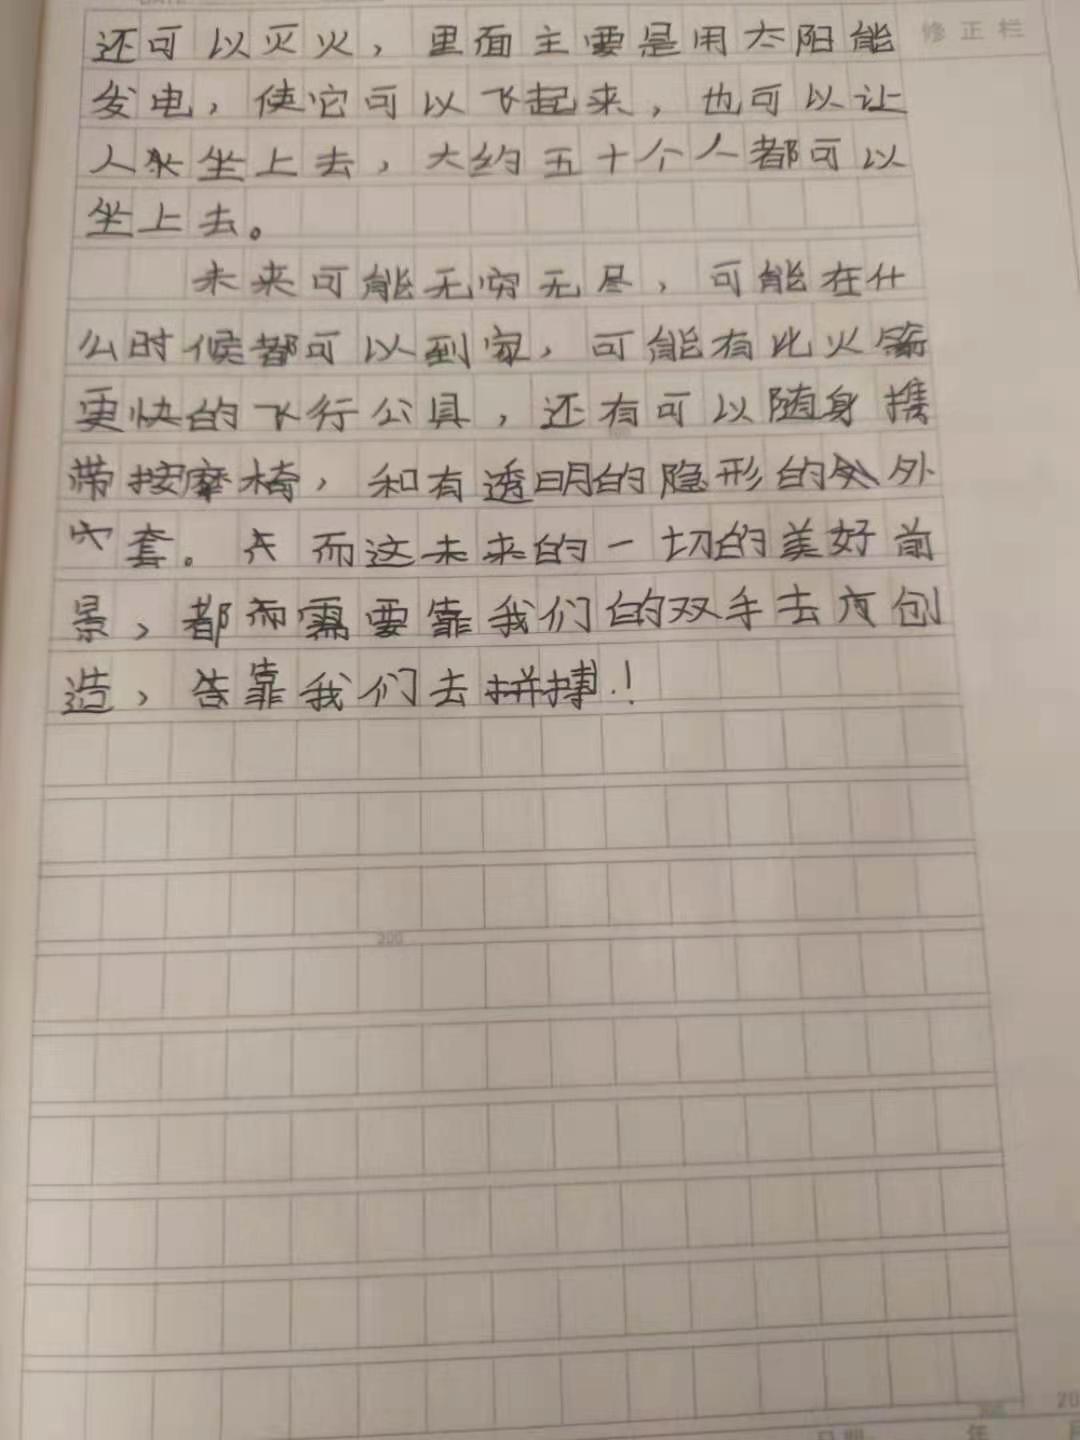 修正栏
还可以灭火，里面主要是用太阳能
发电，使它可以飞起来，也可以让
人来坐上去，大约五十个人都可以
坐上去。
未来可能无穷无尽，可能在什
么时候都可以到家，可能有比火箭
更快的飞行公具，还有可以随身携
带按摩椅，和有透明的隐形的外
套。而这未来的一切的美好前
景，都需要靠我们的双手去创
造，靠我们去拼搏！
200
年
月